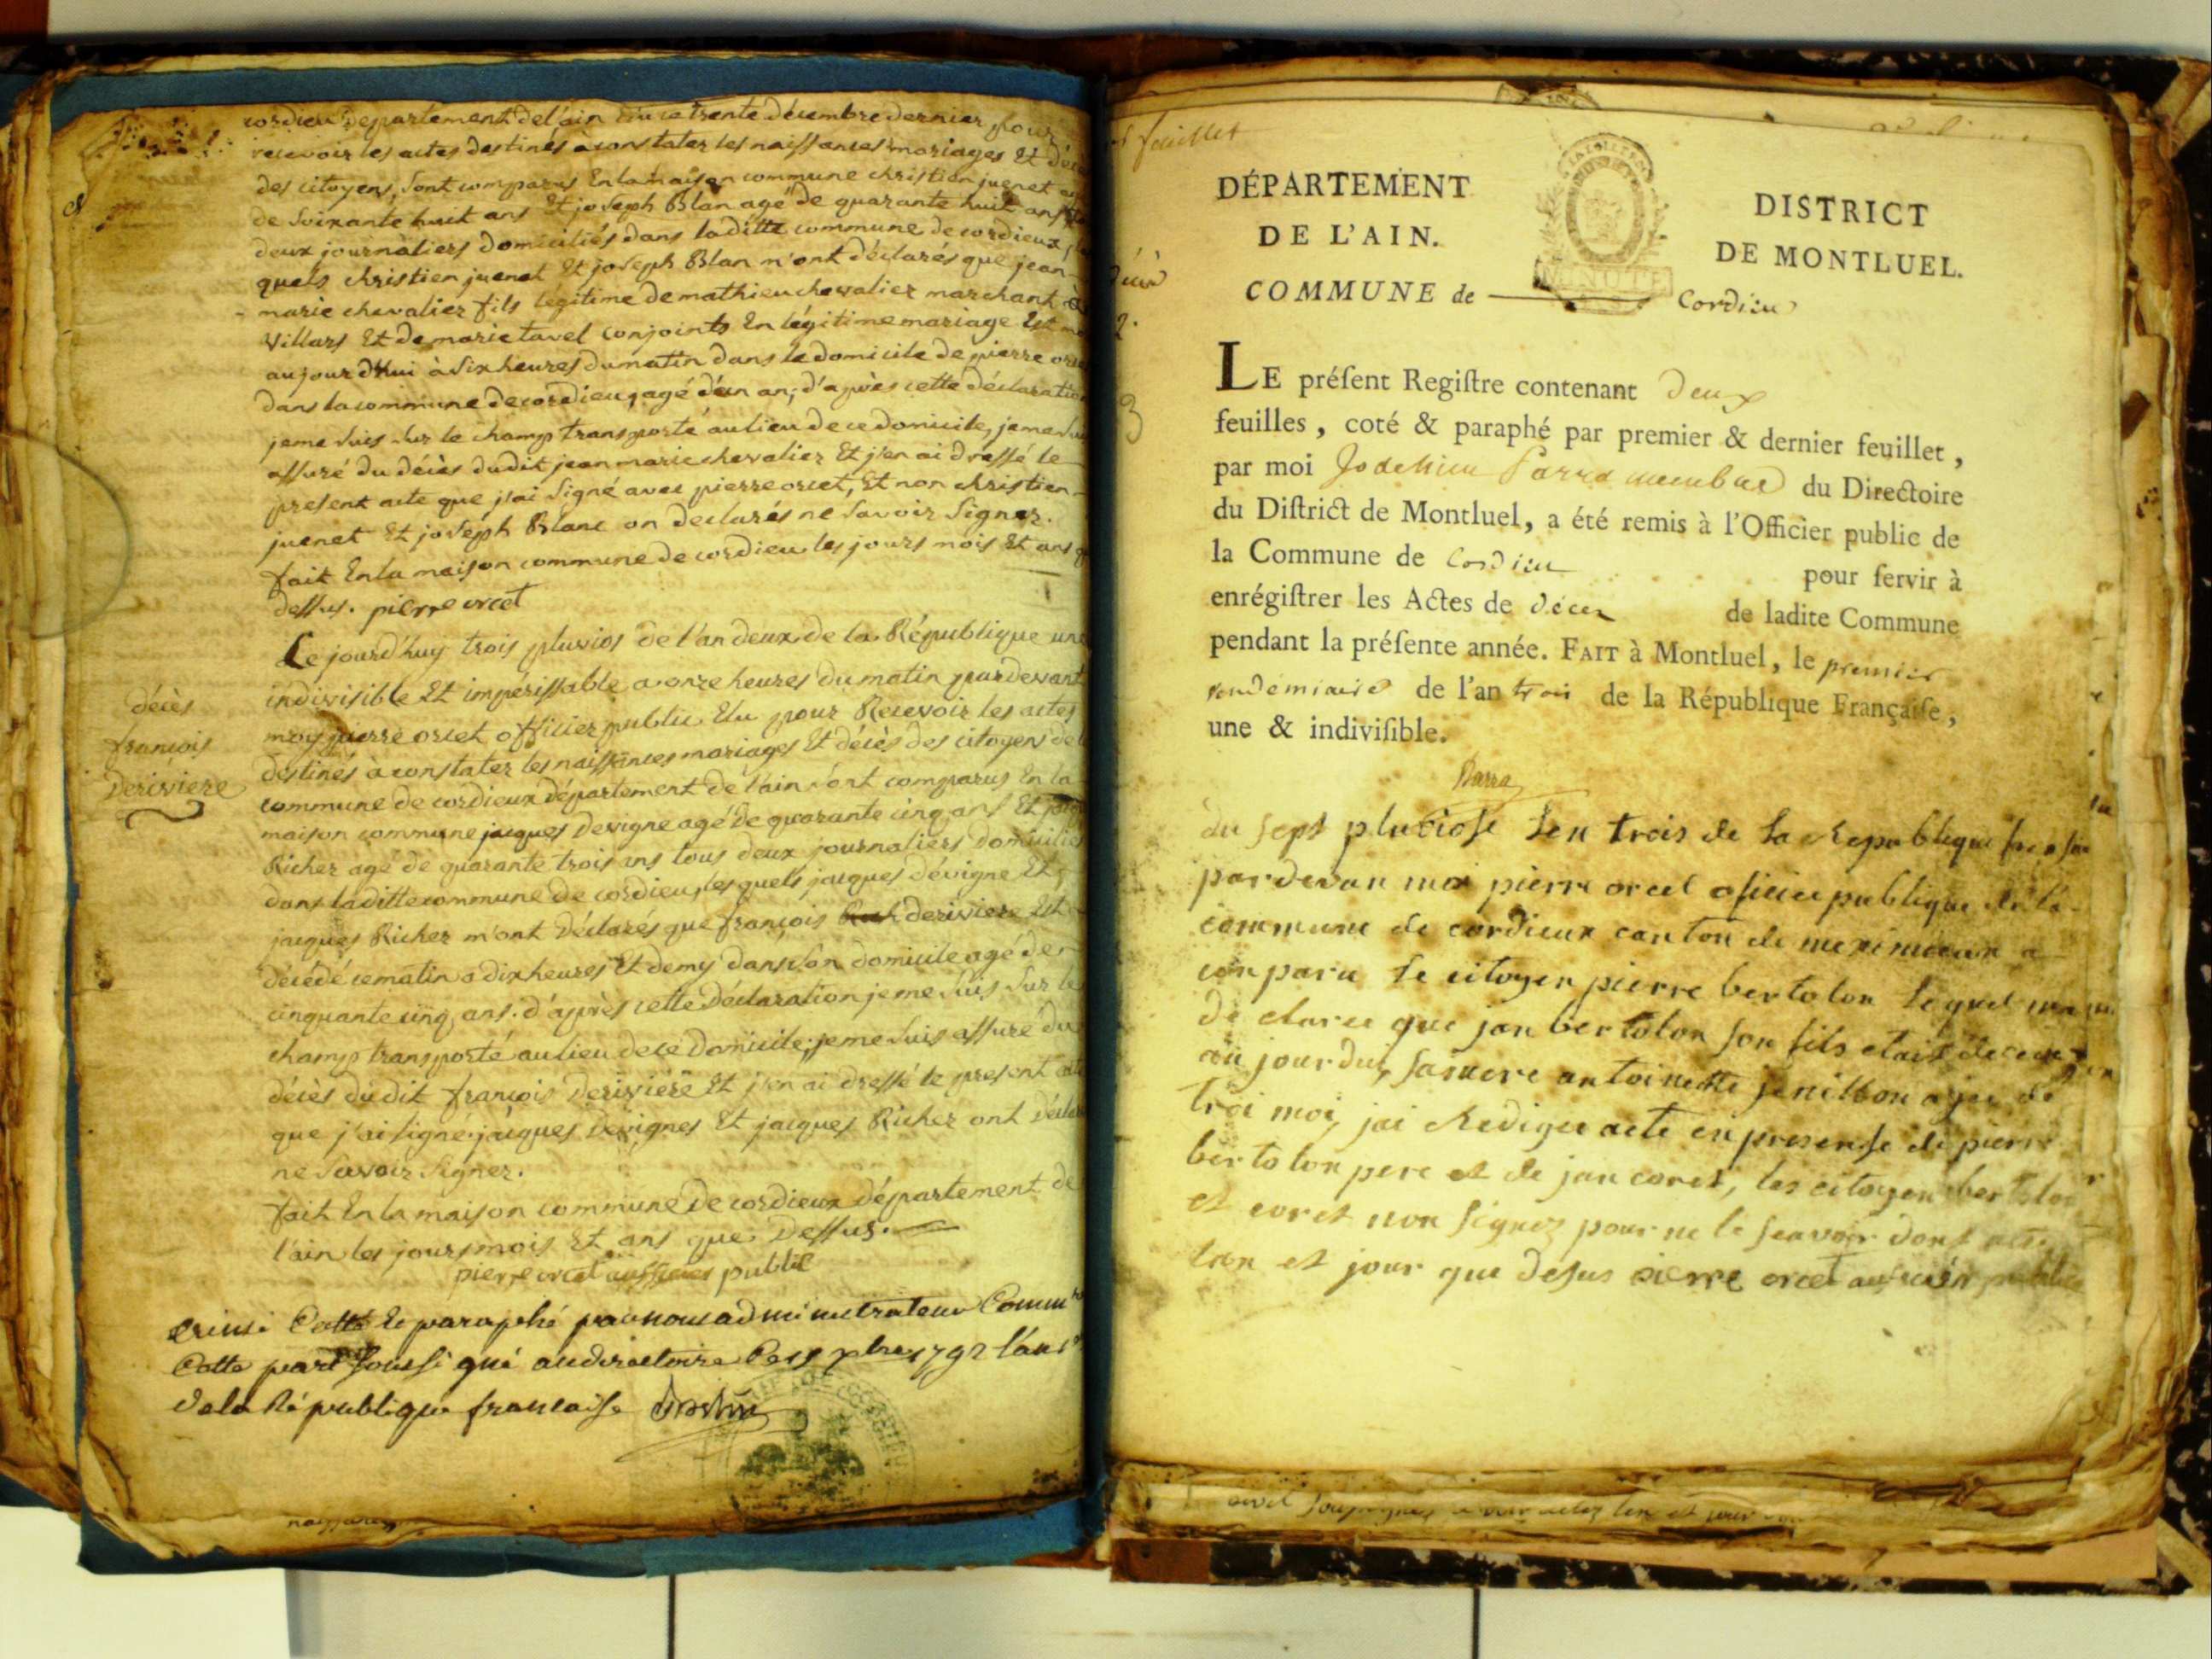 cordieu département de l'ain trente décembre dernier pour
recevoir les actes destinés à constater les naissances mariages Et
des citoyens, sont comparus En la maison commune christien juenet
de soixante huit ans Et joseph Blan agé de quarante huit ans
deux journaliers domiciliés dans laditte commune de cordieux
quels christien juenet Et joseph Blan m'ont déclarés que jean
marie chevalier fils légitime de mathieu chevalier marchant à
villars Et de marie tavel conjoints En légitime mariage Est
aujourd'hui à six heures du matin dans le domicile de pierre
dans la commune de cordieu, agé d'un an; d'après cette déclaration
je me suis sur le champ transporté au lieu de ce domicile, je me
assuré du décès dudit jean marie chevalier Et j'en ai dressé le
present acte que j'ai signé avec pierre orcet, Et non christien
juenet Et joseph Blanc on declarés ne savoir signer.
fait En la maison commune de cordieu les jours mois Et ans
dessus. pierre orcet
Le jourd'huy trois pluvios de l'an deux de la République une
indivisible Et impérissable a onze heures du matin pardevant
moy pierre orcet officier public Elu pour Recevoir les actes
destinés à constater les naissances mariages Et décès des citoyens de
décès
françois
deriviere
commune de cordieux département de l'ain sont comparus En la
maison commune jacques devigne agé de quarante cinq ans Et
Richer agé de quarante trois ans tous deux journaliers domiciliés
dans laditte commune de cordieu, les quels jacques dévigne Et
jacques Richer m'ont déclarés que françois deriviere Est
décédé ce matin a dix heures Et demy dans son domicile agé de
cinquante cinq ans. d'après cette déclaration je me suis sur le
champ transporté au lieu de ce domicile, je me suis assuré du
décès du dit françois deriviére Et j'en ai dressé le present
que j'ai signé jacques devignes Et jacques Richer ont
ne savoir signer.
fait En la maison commune de cordieux département de
l'ain les jours mois Et ans que dessus.
pierre orcet public
Cotté Et paraphé par nous administrateur
Cotte part soussigné au directoire 1792 l'an
de la République francaise
feuillet
DÉPARTEMENT
DE L'AIN.
DISTRICT
DE MONTLUEL.
MINUTE
COMMUNE de Cordieu
LE préſent Regiſtre contenant deux
feuilles, coté & paraphé par premier & dernier feuillet,
par moi membre du Directoire
du Diſtrict de Montluel, a été remis à l'Officier public de
la Commune de Cordieu pour ſervir à
enrégiſtrer les Actes de décès de ladite Commune
pendant la préſente année. FAIT à Montluel, le premier
vendémiaire de l'an trois de la République Françaiſe,
une & indiviſible.
du sept pluviose len trois de la Republique
pardevan moi pierre orcel publique de la
commune de cordieux canton de meximieux a
conparu le citoyen pierre bertolon lequel
de claree que jan bertolon son fils etait
au jourdui, samere antoinette agee de
troi moi, jai Rediger acte en presense de pierre
bertolon pere et de jan coret, les citoyen bertolon
et coret non signez pour ne le seavoir dont acte
lan et jour que desus pierre orcet